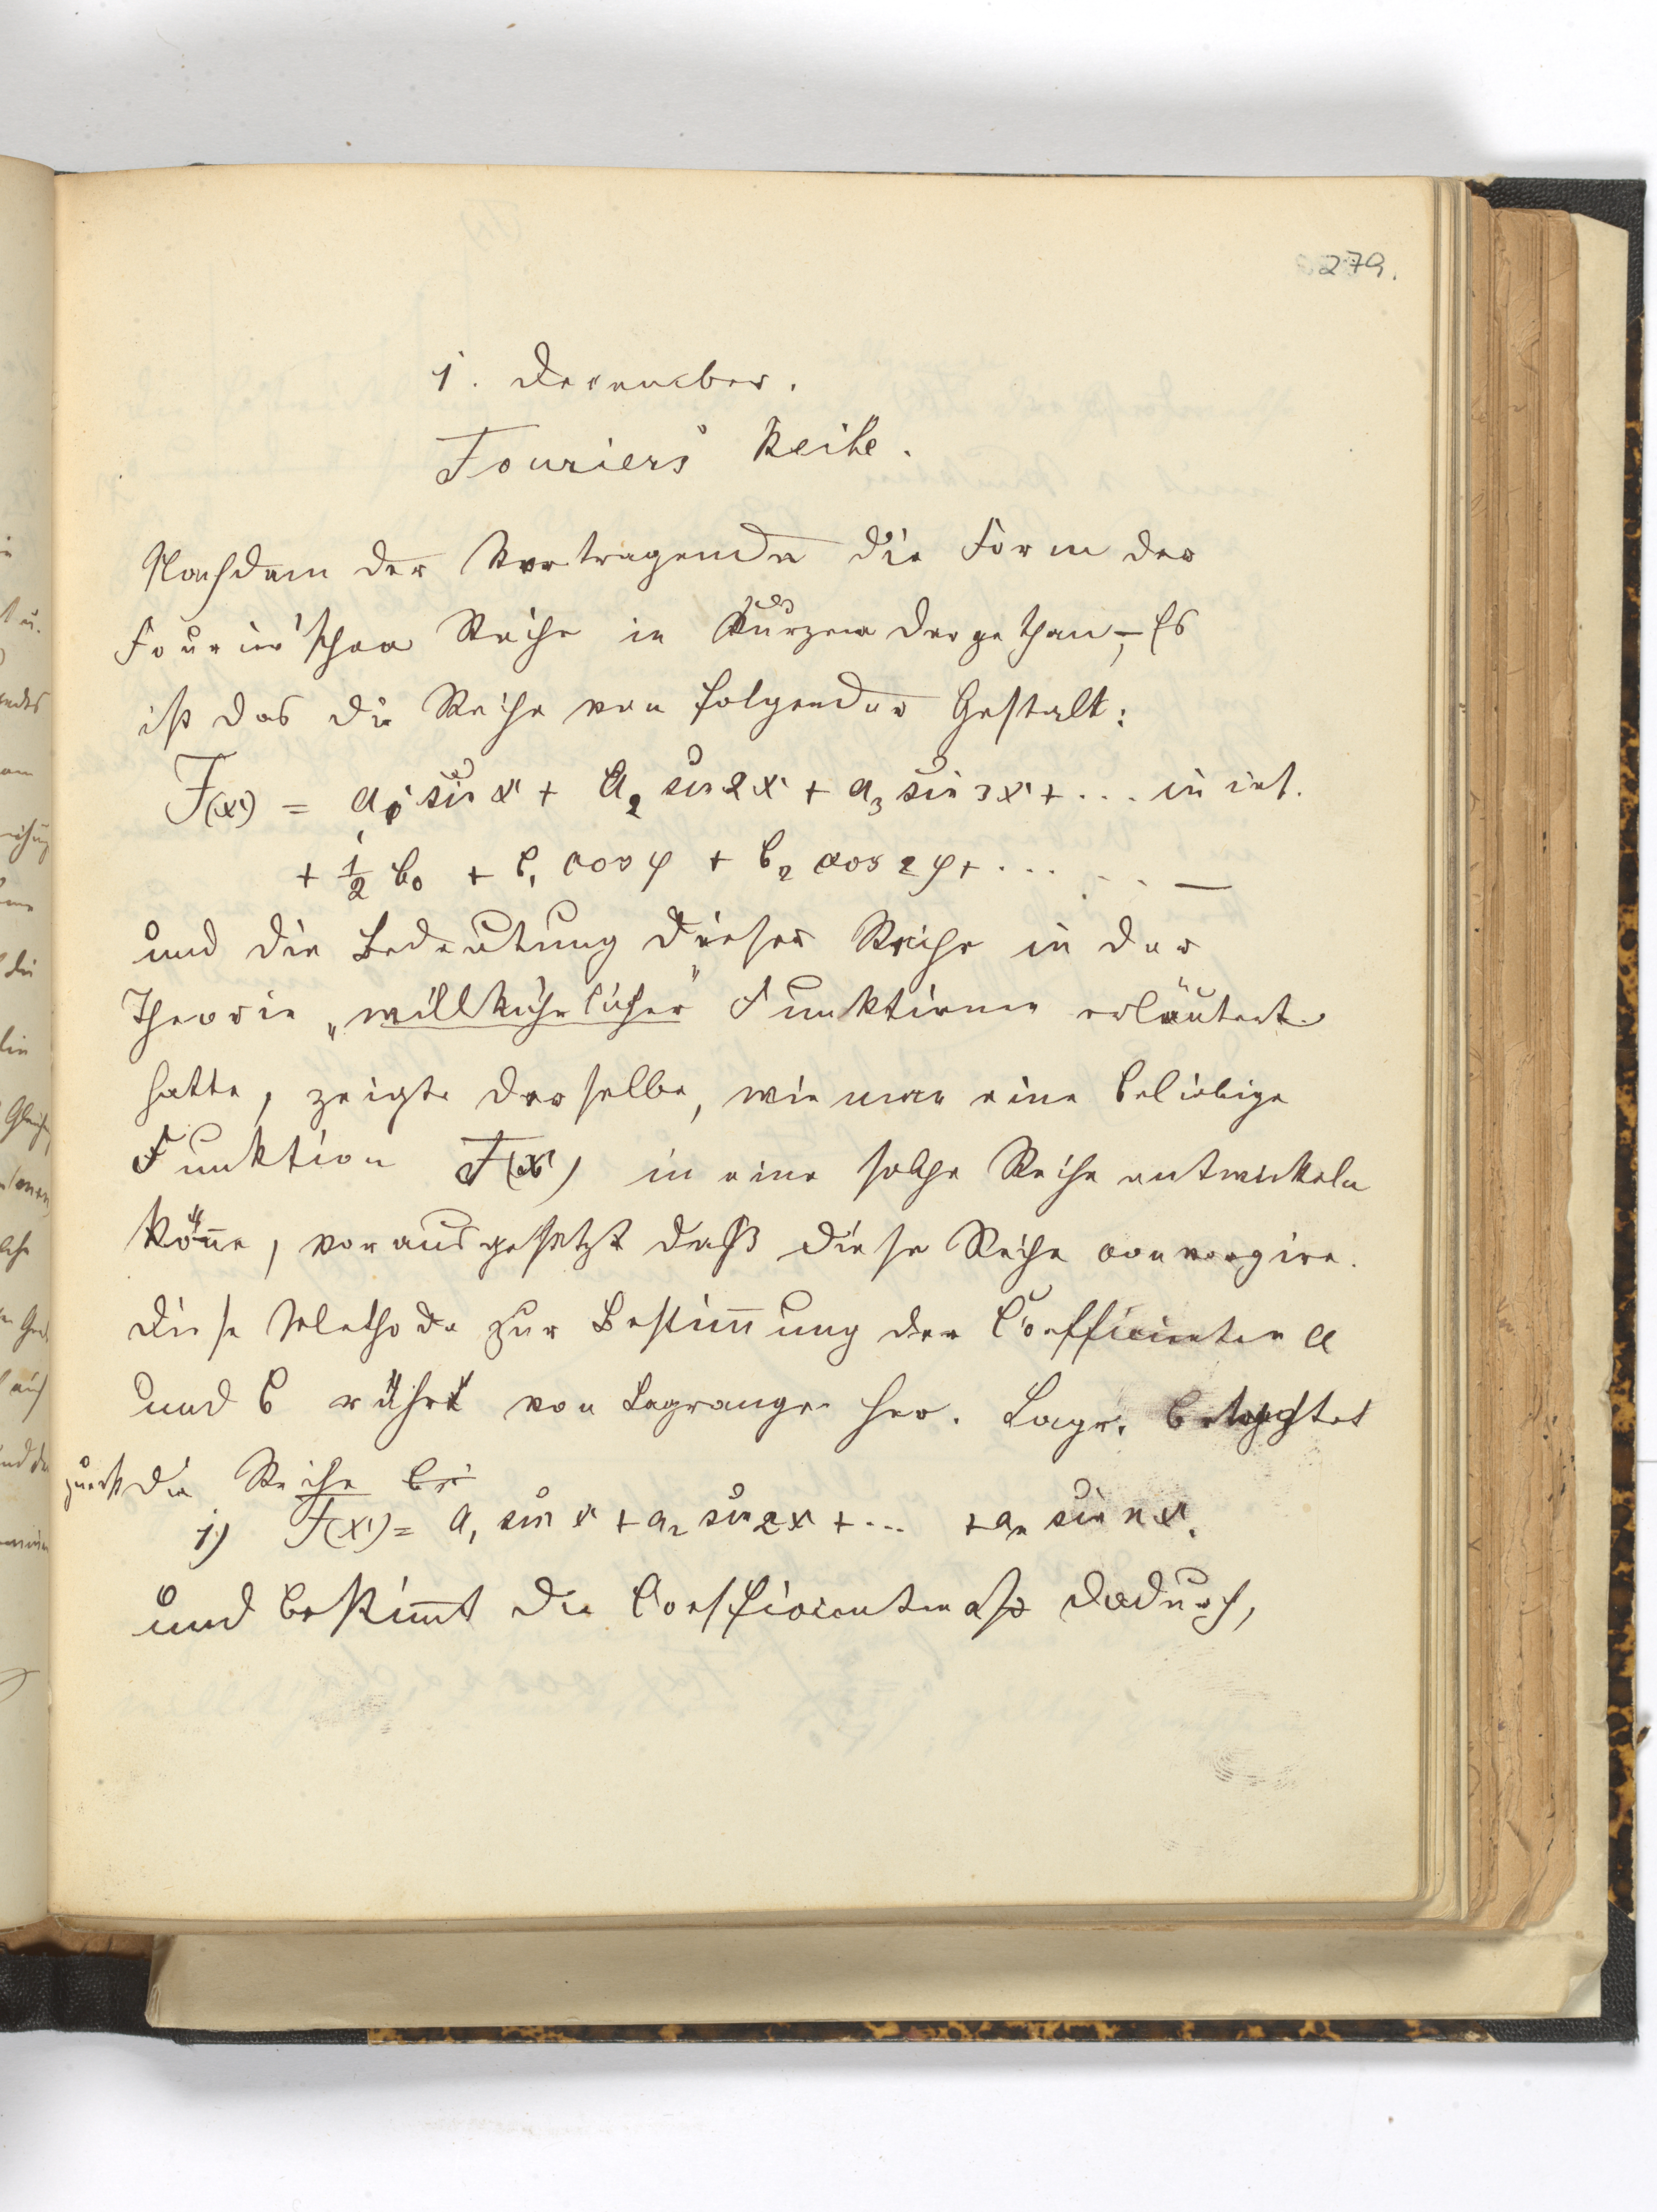 279.
1. December.
Fouriers Reihe.
Nachdem der Vortragende die Form der
Fourier'schen Reihe in Kurzem dargethan, – Es
ist das die Reihe von folgender Gestalt:
F(x) = a₁ sin x + a₂ sin 2x + a₃ sin 3x + ... in inf.
+ ½ b₀ + b₁ cos φ + b₂ cos 2φ + ... . . . —
und die Bedeutung dieser Reihe in der
Theorie „willkührlicher" Funktionen erläutert
hatte, zeigte derselbe, wie man eine beliebige
Funktion F(x) in eine solche Reihe entwickeln
könne, vorausgesetzt daß diese Reihe convergire.
Diese Methode zur Bestimmung der Coefficienten a
und b rührt von Lagrange her. Lagr. betrachtet
zuerst die Reihe
1) F(x) = a₁ sin x + a₂ sin 2x + ... + aₙ sin nx.
und bestimmt die Coefficienten dadurch,